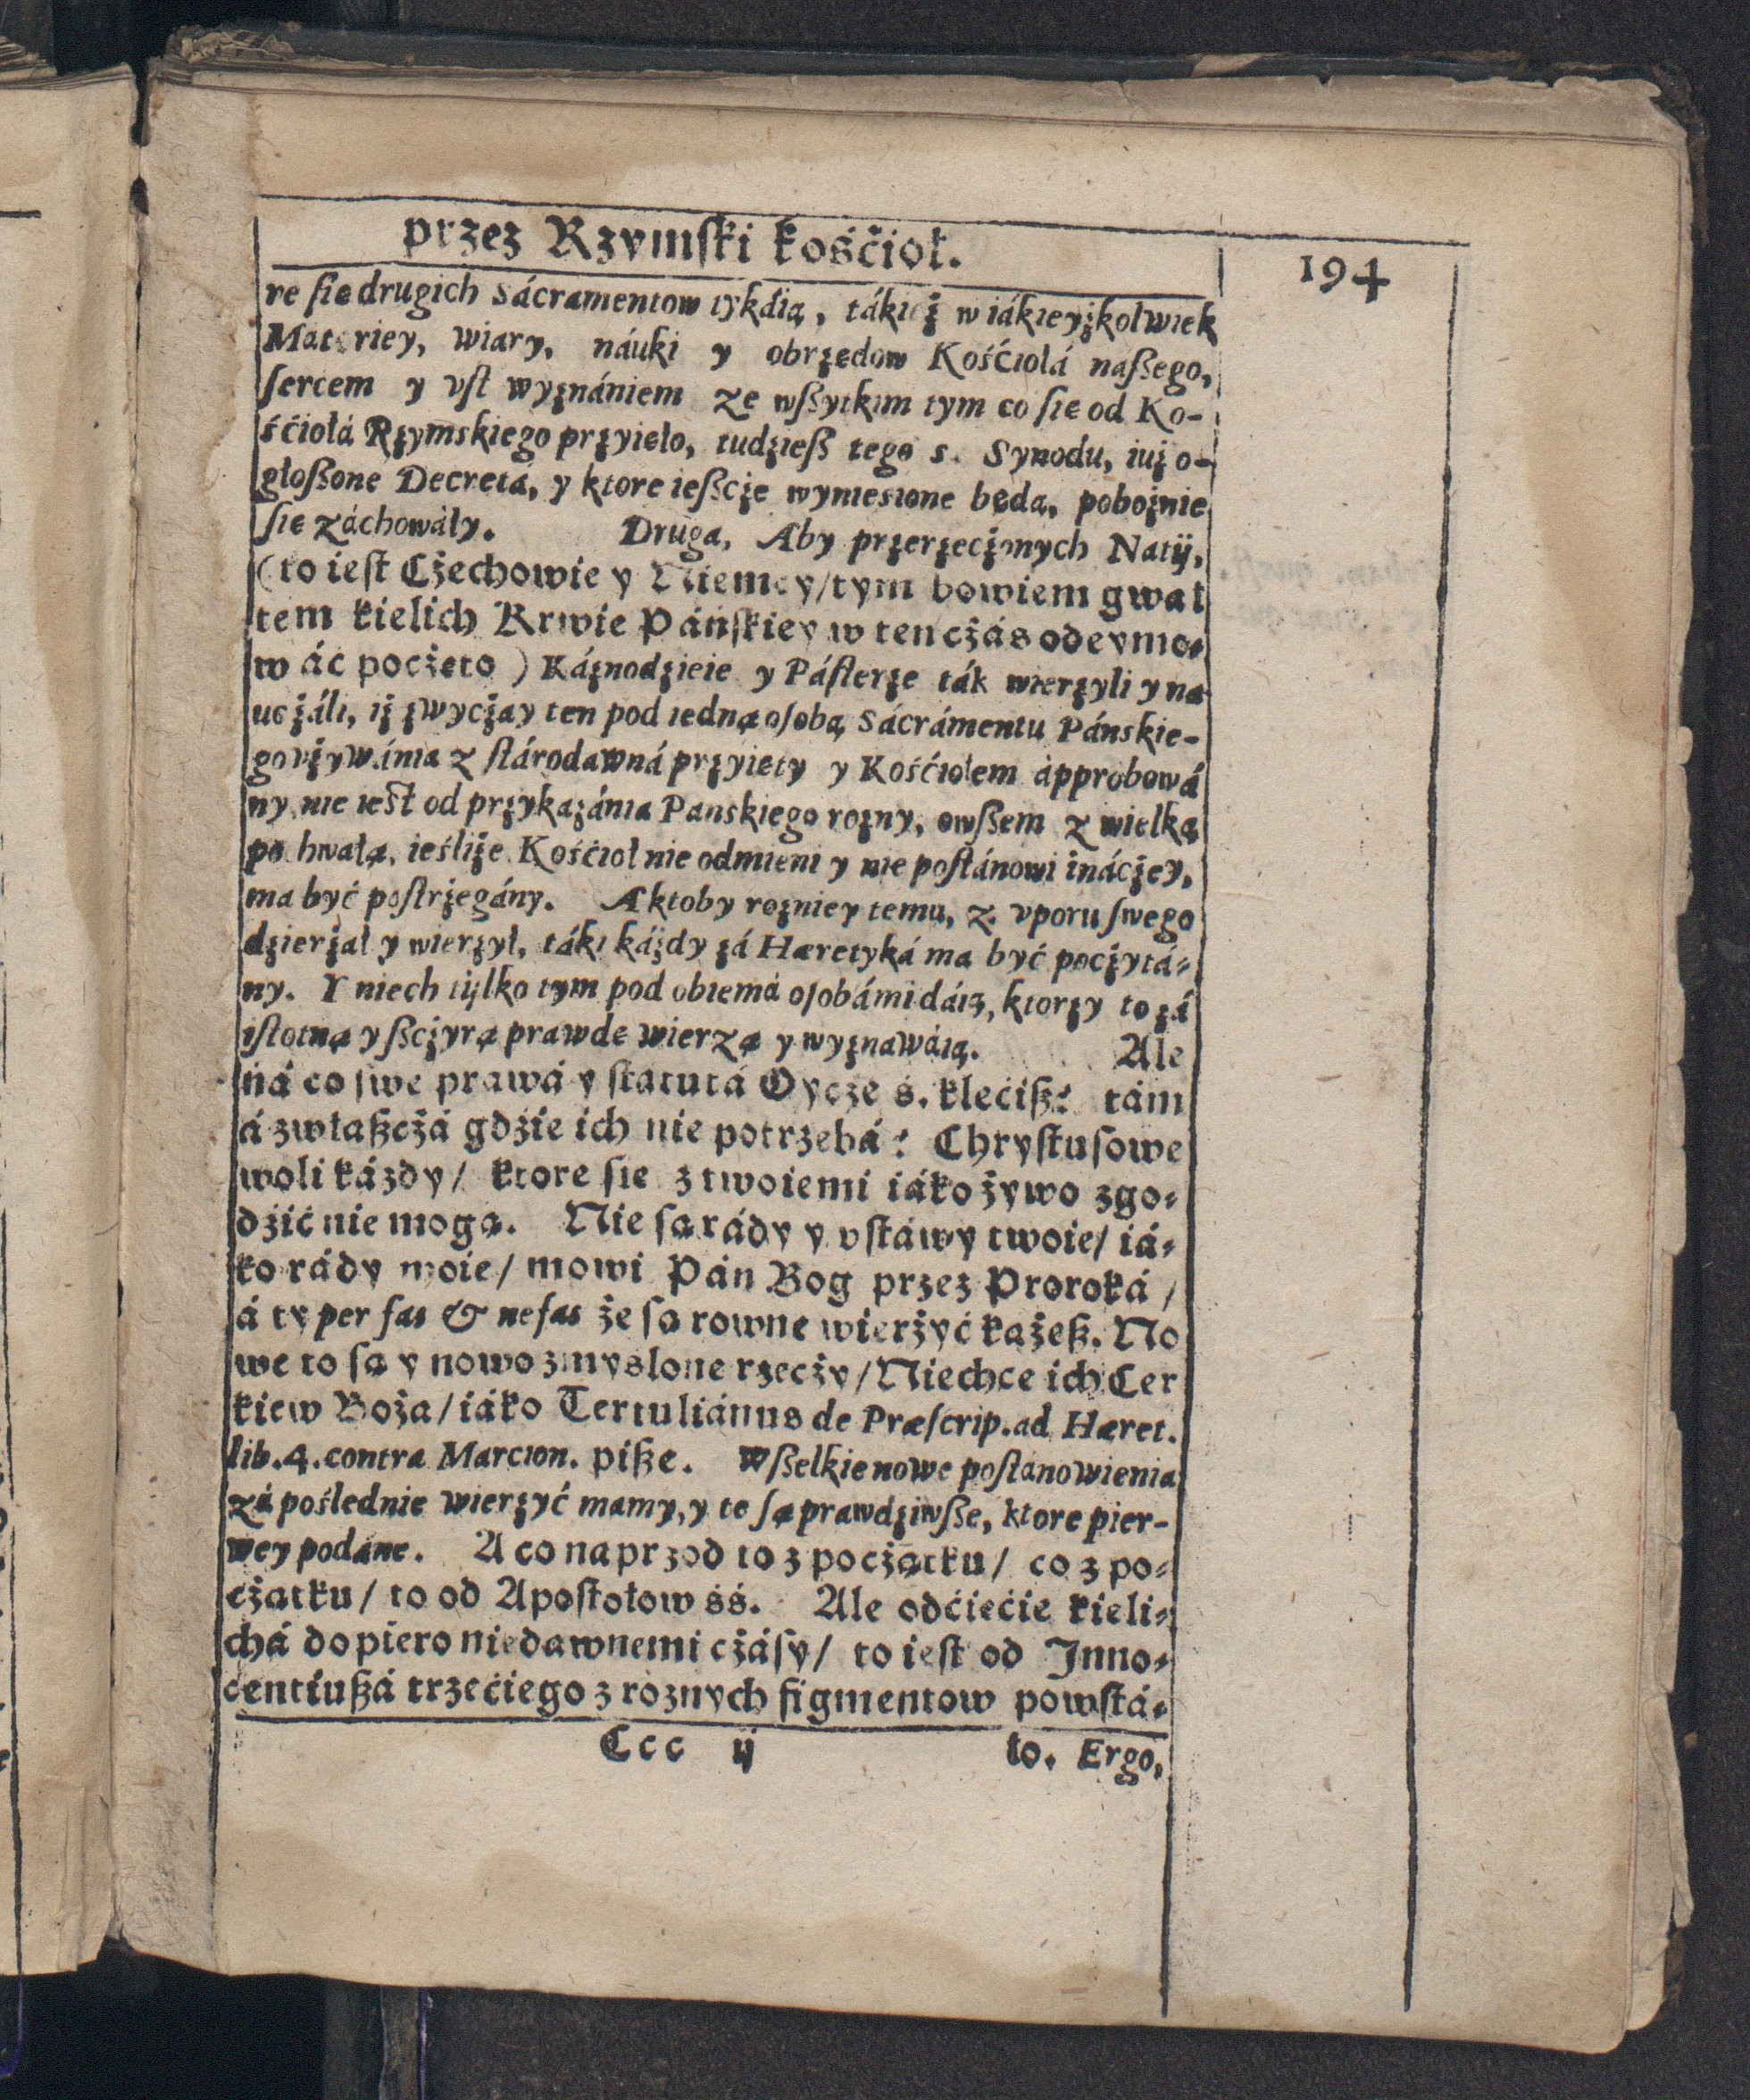 przez Rzymſki kośćioł.
194
re ſie drugich Sácramentow tykáią, tákież w iákieyżkolwiek
Materiey, wiary, náuki y obrzędow Kośćiołá naßego,
ſercem y vſt wyznániem ze wßytkim tym co ſię od Ko-
śćiołá Rzymskiego przyięło, tudzieß tego s. Synodu, iuż o-
głoßone Decretá, y ktore ießcże wyniesione będą, pobożnie
ſię záchowáły. Druga, Aby przerzecżonych Natÿ,
(to ieſt Cżechowie y Niemcy/ tym bowiem gwał
tem kielich Krwie Páńſkiey w ten cżás odeymo-
wáć pocżęto) Káznodzieie y Páſterze ták wierzyli y na
ucżáli, iż zwycżay ten pod iedną oſobą Sácrámentu Pánskie-
go vżywánia z ſtárodawná przyięty y Kośćiołem approbowá
ny, nie iest od przykazánia Panskiego rozny, owßem z wielką
pochwałą, ieśliże Kośćioł nie odmieni y nie poſtánowi inácżey,
ma być poſtrzegány. A ktoby rozniey temu, z vporu ſwego
dzierżał y wierzył, táki káżdy zá Hæretyká ma być pocżytá-
ny. Y niech tylko tym pod obiemá oſobámi dáią, ktorzy to zá
iſtotną y ßcżyrą prawdę wierzą y wyznawáią. Ale
ná co ſwe prawá y ſtatutá Oycze ś. klećiß? tám
á zwłaßcżá gdżie ich nie potrzebá? Chryſtuſowe
woli káżdy/ ktore ſię z twoiemi iáko żywo zgo-
dźić nie mogą. Nie ſą rády y vſtáwy twoie/ iá-
ko rády moie/ mowi Pan Bog przez Proroká/
á ty per fas & nefas że ſą rowne wierżyć każeß. No
we to ſą y nowo zmyslone rzecży/ Niechce ich Cer
kiew Boża/ iáko Tertuliánus de Præſcrip. ad Hæret.
lib. 4. contra Marcion. piße. Wßelkie nowe poſtanowienia
zá poślednie wierzyć mamy, y te ſą prawdziwße, ktore pier-
wey podáne. A co naprzod to z pocżątku/ co z po-
cżątku/ to od Apoſtołow śś. Ale odćięćie kieli-
chá dopiero niedawnemi cżáſy/ to ieſt od Inno-
centiußá trzećiego z roznych figmentow powſtá-
Ccc ij
ło. Ergo,